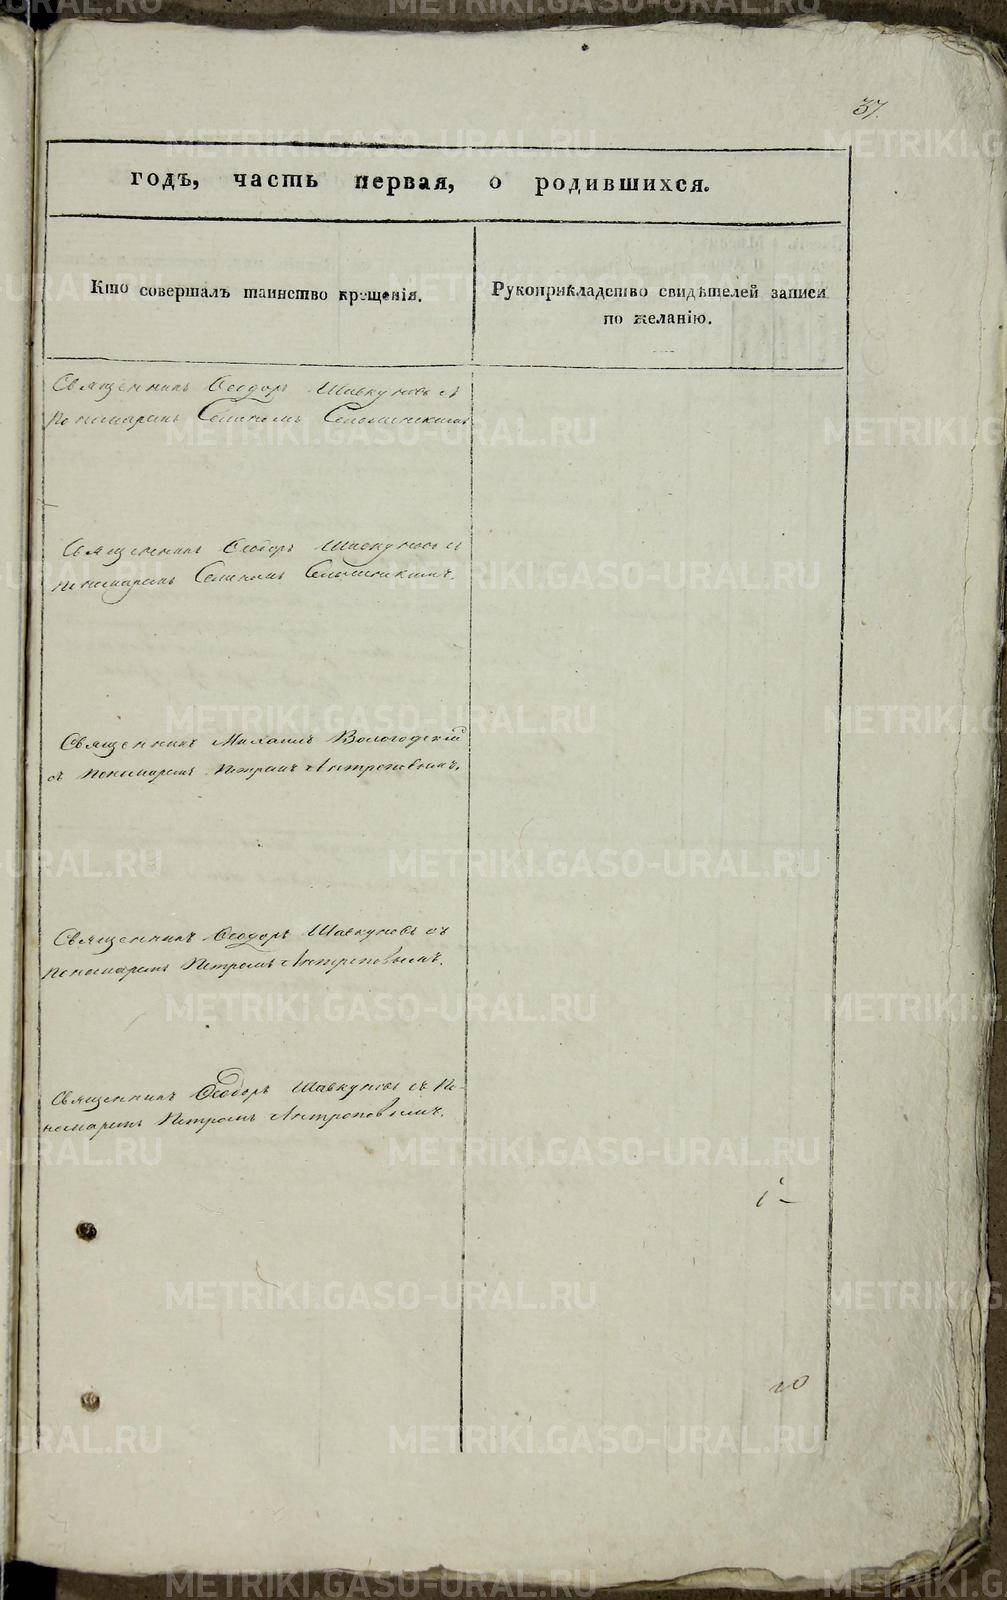 37.
годъ, часть первая, о родившихся.
Кто совершалъ таинство крещенія.
Рукоприкладство свидѣтелей записи
по желанію.
Священникъ Ѳеодоръ Шавкуновъ съ
пономаремъ
Священникъ Ѳеодоръ Шавкуновъ съ
пономаремъ
Священникъ Михаилъ Вологодскій
съ пономаремъ Петромъ Антроповымъ.
Священникъ Ѳеодоръ Шавкуновъ съ
пономаремъ Петромъ Антроповымъ.
Священникъ Ѳеодоръ Шавкуновъ съ по-
номаремъ Петромъ Антроповымъ.
METRIKI.GASO-URAL.RU